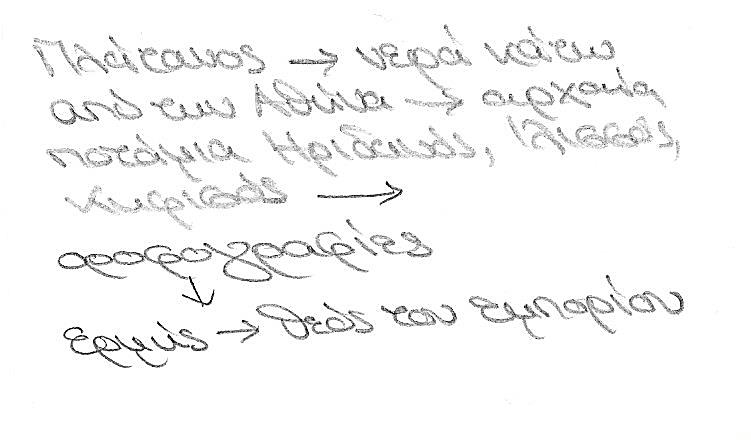 Πλάτανος → νερά κάτω
από την Αθήνα → αρχαία
ποτάμια Ηριδανός, Ιλισσός,
Κηφισός →
οροφογραφίες
↓
Ερμής → θεός του εμπορίου